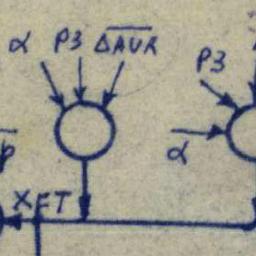 α P3 ΔAUR
P3
α
P
XFT